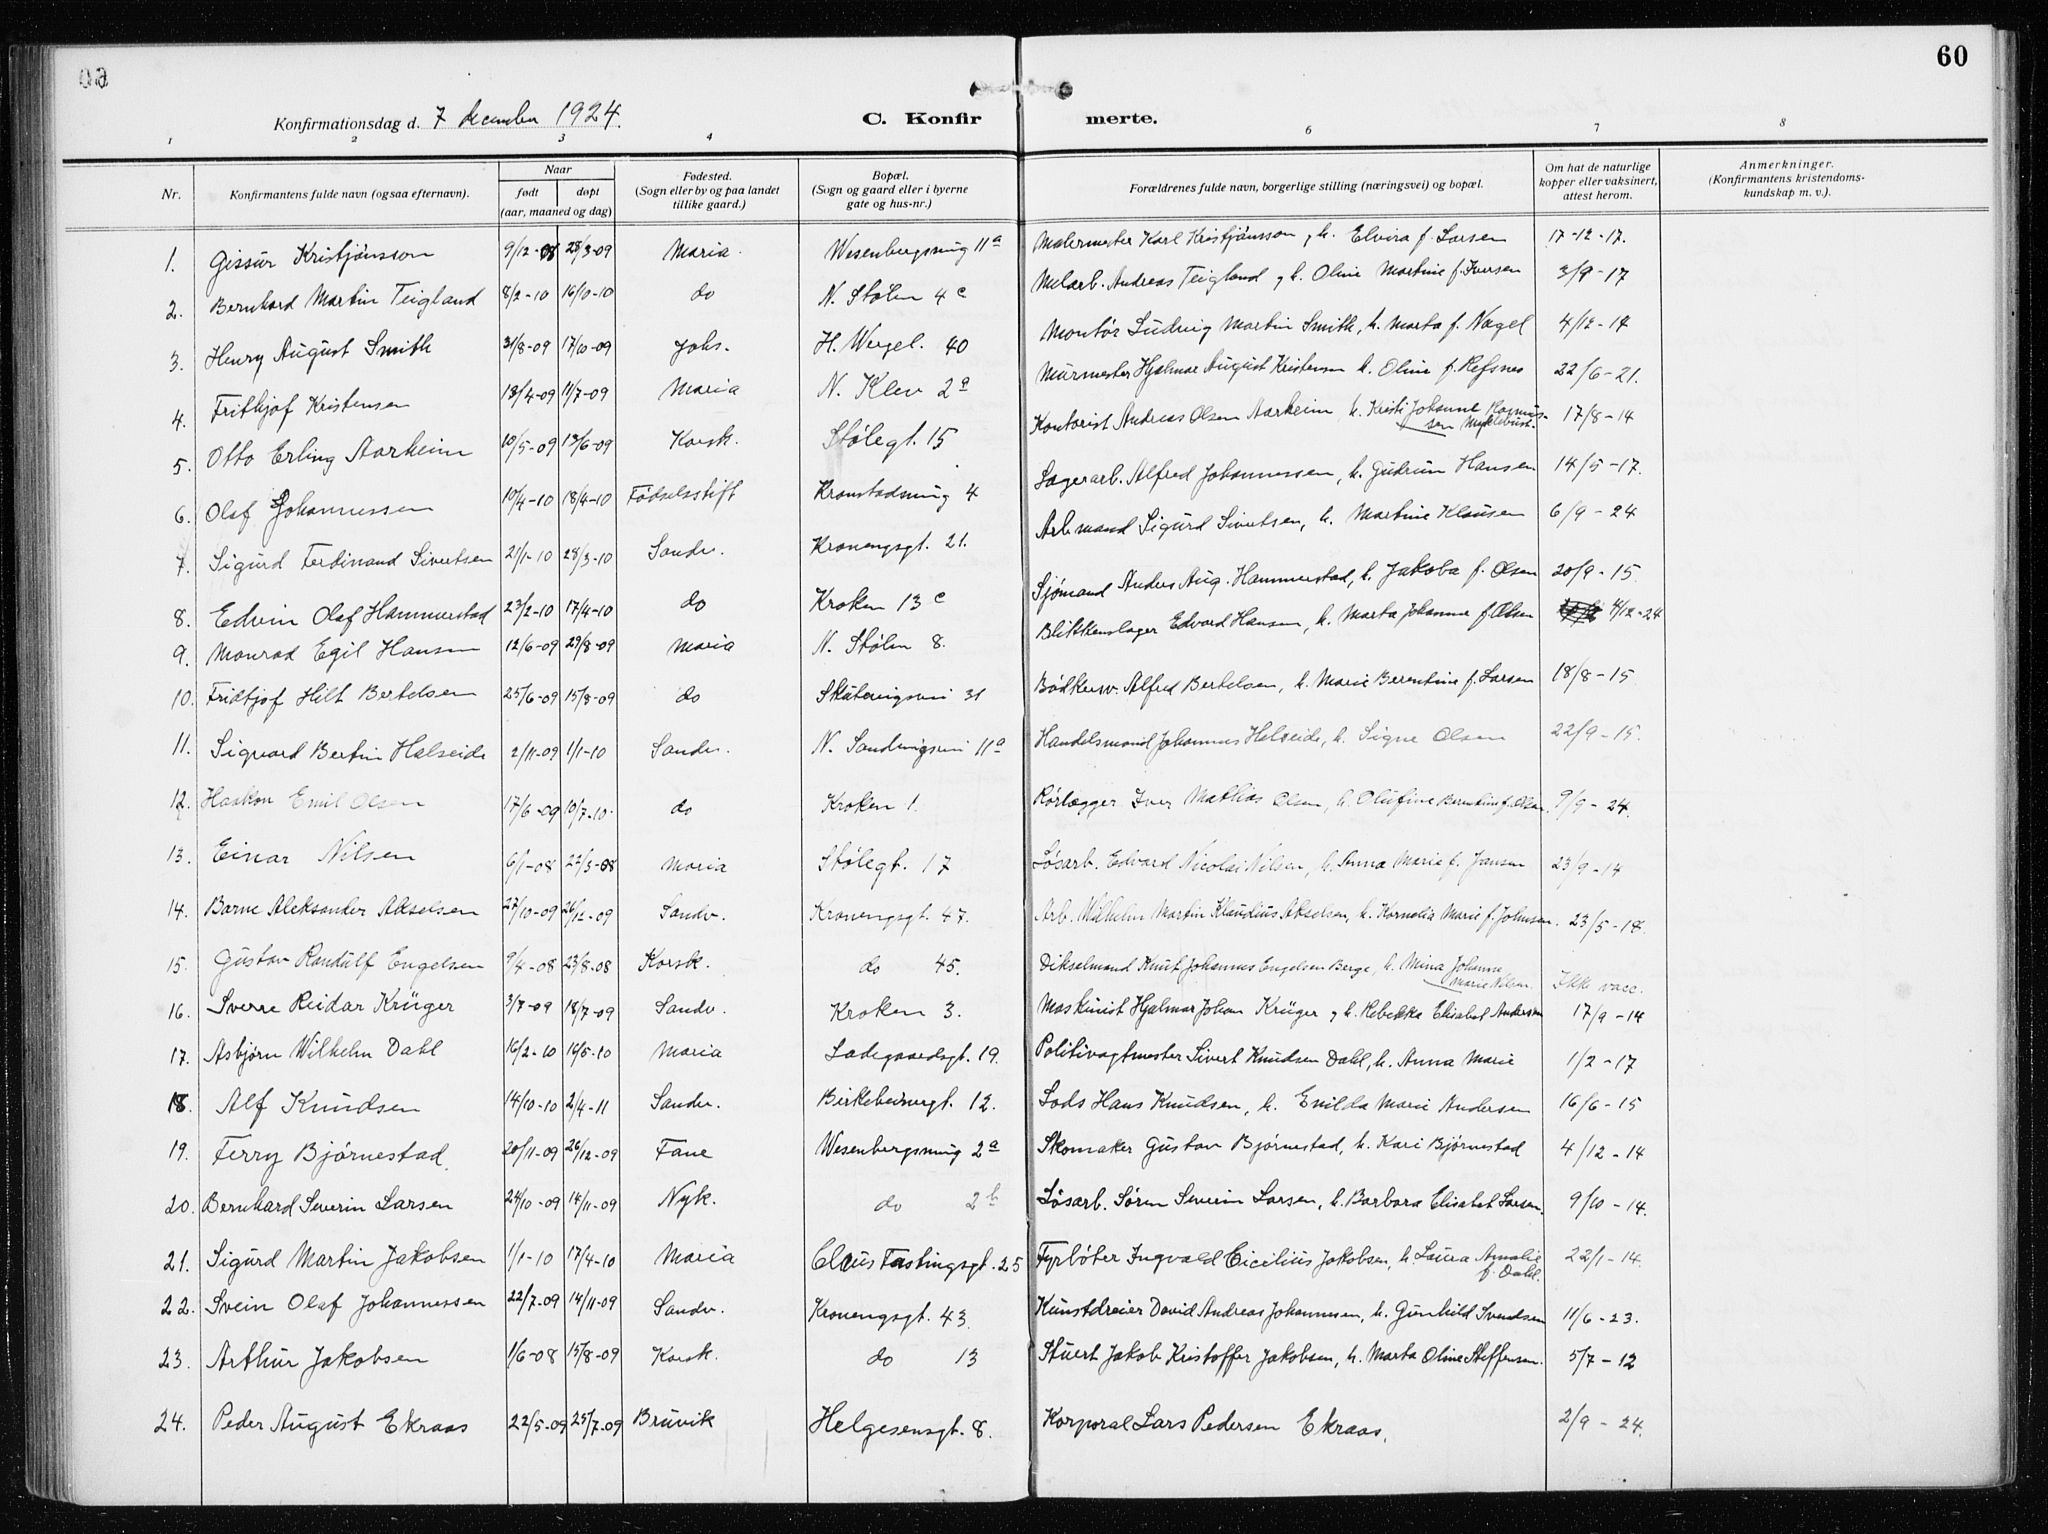 60
Konfirmationsdag d. 7 december 1924.
C. Konfirmerte.
1 2 3 4 6 7 8
Nr. Konfirmantens fulde navn (ogsaa efternavn). Naar født døpt (aar, maaned og dag) Fødested. (Sogn eller by og paa landet tillike gaard.) Bopæl. (Sogn og gaard eller i byerne gate og hus-nr.) Forældrenes fulde navn, borgerlige stilling (næringsvei) og bopæl. Om hat de naturlige kopper eller vaksinert, attest herom. Anmerkninger. (Konfirmantens kristendomskundskap m. v.).
1. Gissur Kristjánsson 9/12-08 28/3-09 Maria. Wesenbergsmug 11a Malermester Karl Kristjánsson, h. Elvira f. Larsen 17-12-17.
2. Bernhard Martin Teigland 8/2-10 16/10-10 do N. Stølen 4c Melarb. Andreas Teigland, h. Oline Martine f. Iversen 3/9-17
3. Henry August Smith 31/8-09 17/10-09 Johs. H. Wergel. 40 Montør Ludvig Martin Smith, h. Marta f. Nagel 4/12-14
4. Frithjof Kristensen 13/4-09 11/7-09 Maria N. Klev 2a Murmester Hjalmar August Kristensen h. Oline f. Refsnes 22/6-21.
5. Otto Erling Aarheim 10/5-09 13/6-09 Korsk. Stølegt. 15 Kontorist Andreas Olsen Aarheim h. Kristi Johanne Rasmussen Myklebust. 17/8-14
6. Olaf Johannessen 10/4-10 18/4-10 Fødselsstift Kronstadsmug 4 Lagerarb. Alfred Johannessen, h. Gudrun Hansen 14/5-17.
7. Sigurd Ferdinand Sivertsen 21/1-10 28/3-10 Sandv. Kronengsgt. 21. Arb.mand Sigurd Sivertsen, h. Martine Klausen 6/9-24
8. Edvin Olaf Hammerstad 23/2-10 17/4-10 do Kroken 13c Sjømand Anders Aug. Hammerstad, h. Jakoba f. Olsen 20/9-15.
9. Monrad Egil Hansen 12/6-09 29/8-09 Maria N. Stølen 8. Blikkenslager Edvard Hansen, h. Marta Johanne f. Olsen 4/12-24
10. Fridtjof Hilt Bertelsen 25/6-09 15/8-09 do Skuteviksvei 31 Bødkersv. Alfred Bertelsen, h. Marie Berentine f. Larsen 18/8-15
11. Sigvard Bertin Halseide 2/11-09 1/1-10 Sandv. N. Sandviksvei 11a Handelsmand Johannes Helseide, h. Signe Olsen 22/9-15.
12. Haakon Emil Olsen 17/6-09 10/7-10. do Kroken 1. Rørlægger Iver Mathias Olsen, h. Olufine Berntine f. Olsen 9/9-24.
13. Einar Nilsen 6/1-08 22/3-08 Maria Stølegt. 17 Løsarb. Edvard Nicolai Nilsen, h. Anna Marie f. Jansen 23/9-14
14. Barne Aleksander Akselsen 27/10-09 26/12-09 Sandv. Kronengsgt. 47. Arb. Wilhelm Martin Klaudius Akselsen, h. Kornelia Marie f. Johnsen. 23/5-18.
15. Gustav Randulf Engelsen 9/4-08 23/8-08 Korsk. do 45. Dikselmand Knut Johannes Engelsen Berge, h. Mina Johanne Marie Nilsen. Ikke vacc.
16. Sverre Reidar Krüger 3/7-09 18/7-09 Sandv. Kroken 3. Maskinist Hjalmar Johan Krüger, h. Rebekka Elisabet Andersen 17/9-14
17. Asbjørn Wilhelm Dahl 16/2-10 16/5-10 Maria Ladegaardsgt. 19. Politivagtmester Sivert Knudsen Dahl, h. Anna Marie 1/2-17
18. Alf Knudsen 14/10-10 2/4-11 Sandv. Birkebeinergt. 12. Lods Hans Knudsen, h. Enilda Marie Andersen 16/6-15
19. Ferry Bjørnestad 20/11-09 26/12-09 Fane Wesenbergsmug 2a Skomaker Gustav Bjørnestad, h. Kari Bjørnestad 4/12-14
20. Bernhard Severin Larsen 24/10-09 14/11-09 Nyk. do 2b Løsarb. Søren Severin Larsen, h. Barbara Elisabet Larsen. 9/10-14.
21. Sigurd Martin Jakobsen 1/1-10 17/4-10 Maria Claus Fastingsgt. 25 Fyrbøter Ingvald Cicilius Jakobsen, h. Laura Amalie f. Dahl. 22/1-14.
22. Svein Olaf Johannessen 22/7-09 14/11-09 Sandv. Kronengsgt. 43. Kunstdreier David Andreas Johannesen, h. Gunhild Svendsen 11/6-23.
23. Arthur Jakobsen 1/6-08 15/8-09 Korsk. do 13 Stuert Jakob Kristoffer Jakobsen, h. Marta Oline Steffensen. 5/7-12
24. Peder August Ekraas 22/5-09 25/7-09 Bruvik Helgesensgt. 8. Korporal Lars Pedersen Ekraas. 2/9-24.